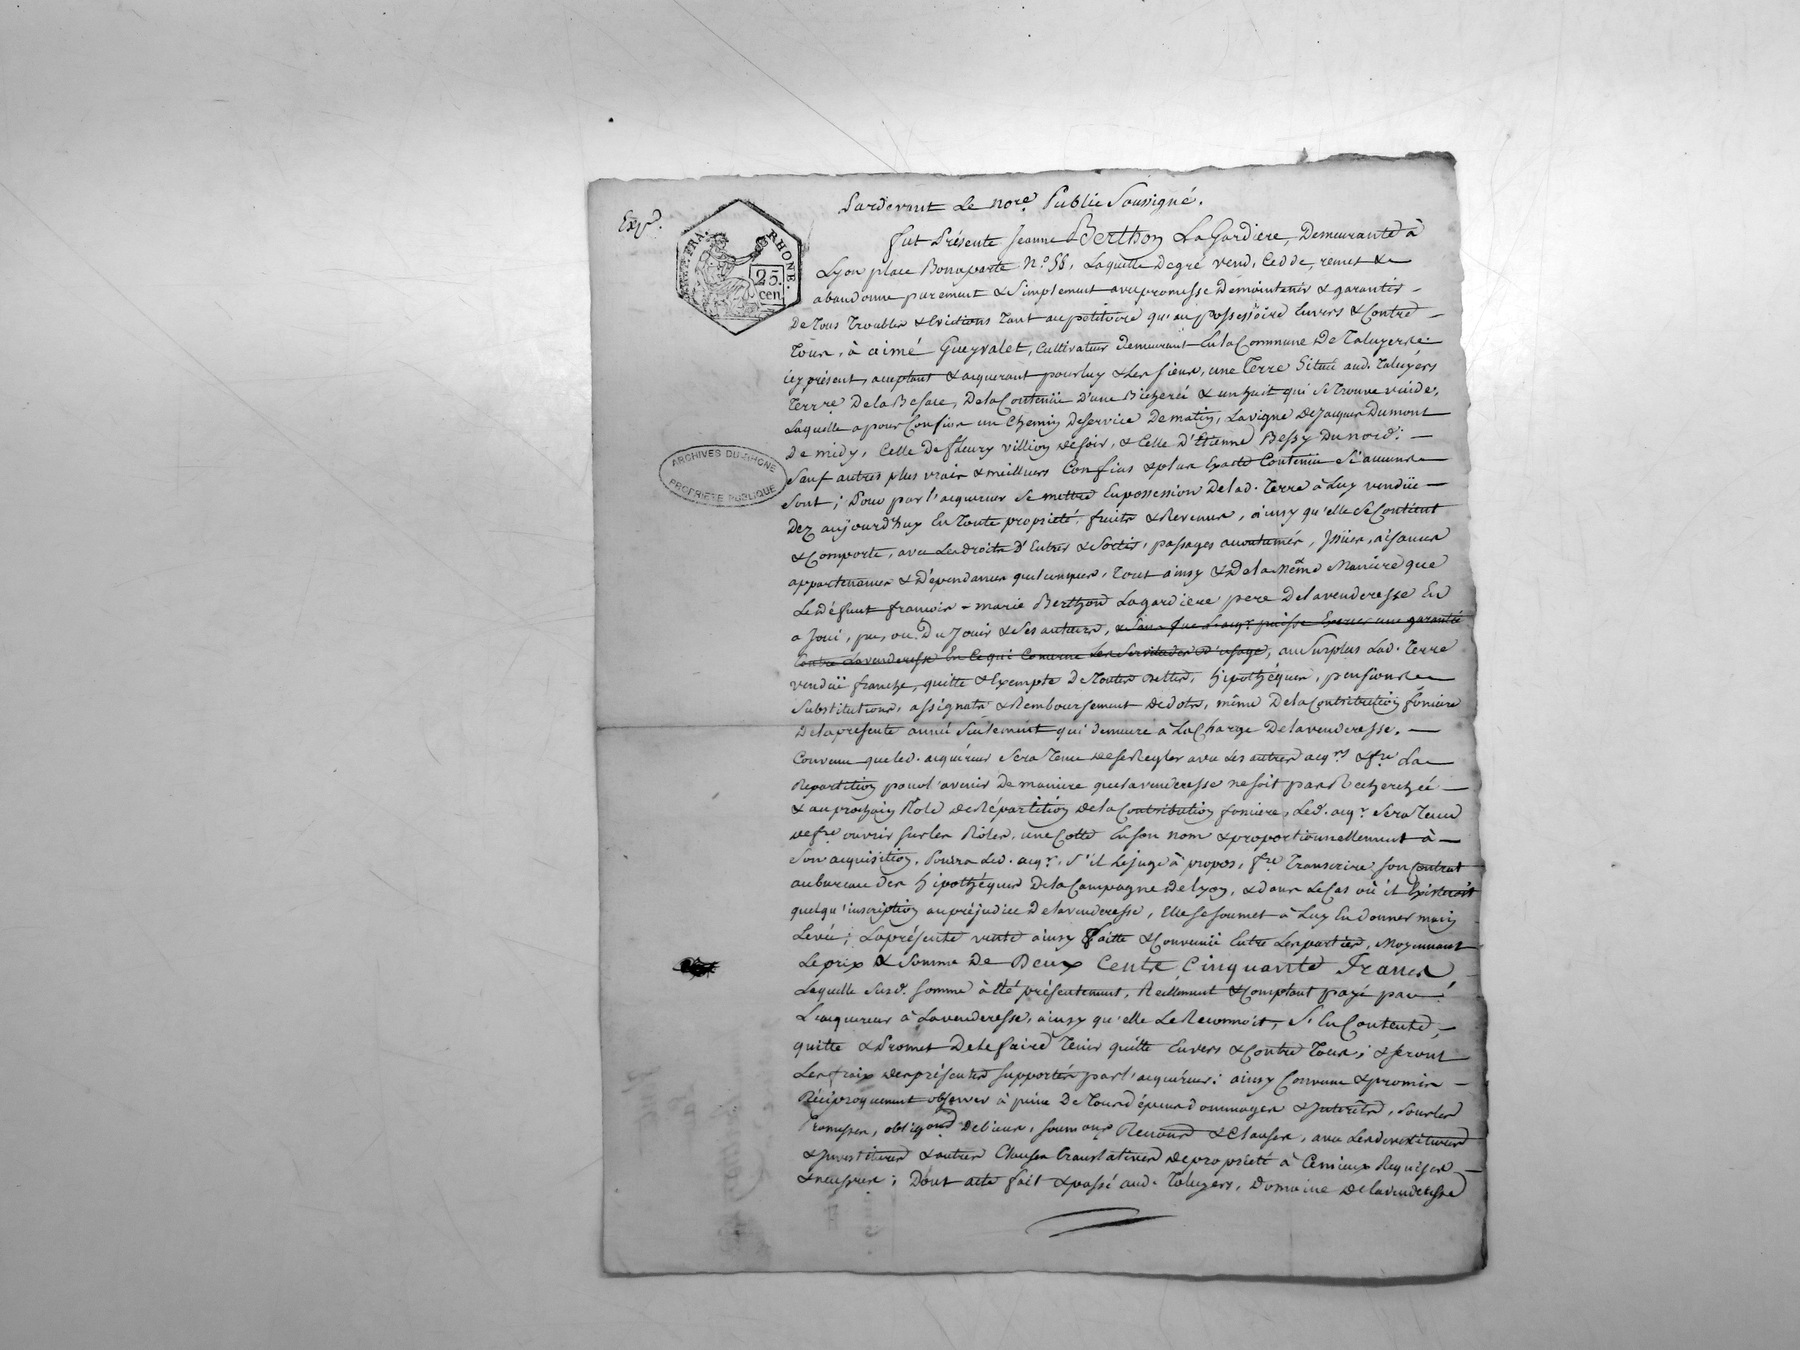 Expé.
REP. FRA. RHONE.
25.
cen.
ARCHIVES DU RHONE
PROPRIETE PUBLIQUE
Pardevant Le nore. Public Soussigné.
fut Présente Jeanne Berthon LaGardiere, Demeurante à
Lyon place Bonaparte N.o 58, Laquelle degré vend, Cedde, remet &
abandonne purement & Simplement avec promesse Demaintenir & garantir
De Tous Troubles & Evictions Tant au petitoire qu'au possessoire Envers & Contre
Tous, à aimé Gueyvalet, Cultivateur demeurant En la Commune De Taluyers
icy présent, acceptant & acquerant pour luy & les siens, une Terre Situé aud. Taluyers
Terre De la Besace, De la Contenüe D'une Bicherée & un huit qui Se Trouve vuide,
Laquelle a pour Confins un Chemin Deservice De matin, La vigne De Jacques Dumont
De midy, Celle De fleury villion de soir, & Celle D'Etienne Bessy Du nord;
Sauf autres plus vrais & meilleurs Confins & plus Exacte Contenüe Si aucuns
Sont; Pour par l'acquereur Se mettre En possession De lad. Terre à Luy vendüe
Dez aujourd'huy En Toute proprieté, fruits & Revenus, ainsy qu'elle Se Contient
& Comporte, avec Les droits D'Entrer & Sortir, passages accoutumés, Issües, aisances
appartenances & Dépendances quelconques, Tout ainsy & De la Même Maniere que
Le défunt francois-marie Berthon Lagardiere pere De la venderesse En
a Joui, pu, ou Du Jouir & Ses auteurs, & Sans que l'acqr. puisse Exercer une garantie
Contre La venderesse En Ce qui Concerne Les Servitudes D'usage, au Surplus Lad. Terre
vendüe franche, quitte & Exempte De Toutes Dettes, hipothéques, pensions
Substitutions, assignats & Remboursement De dots, même De la Contribution fonciere
De la presente année Seulement qui Demeure à La Charge De la venderesse.
Convenu que led. acquéreur Sera Tenu de Se Regler avec Les autres acqrs. & fre. La
Repartition pour l'avenir De maniere que la venderesse ne soit pas Recherchée
& au prochain Rôle De Répartition De la Contribution fonciere, Led. acqr. Sera Tenu
de fre. ouvrir Sur les Rôles, une Cotte En Son nom & proportionnellement à
Son acquisition. Pourra Led. acqr. S'il Le juge à propos, fre. Transcrire Son Contrat
au bureau des hipothéques De la Campagne De Lyon, & dans Le Cas où il Existeroit
quelqu'inscription au préjudice De la venderesse, Elle Se Soumet à Luy En donner main
Levée; La présente vente ainsy faitte & Convenüe Entre Les parties, Moyennant
Le prix & Somme De Deux Cents Cinquante Francs
Laquelle Susd. Somme à Eté présentement, Réellement & Comptant payé par
L'acquereur à La venderesse, ainsy qu'elle Le Reconnoit, S'En Contente,
quitte & Promet De le faire Tenir quitte Envers & Contre Tous; & seront
Les fraix des présentes Supportés par l'acquéreur; ainsy Convenu & promis
Réciproquement observer à peine De Tous dépens dommages & interêts, Sous les
Promesses, obligaons De biens, Soumons Renons & Clauses, avec Les devestitures
& Investitures & autres Clauses translatives De proprieté à Ce mieux Requises
& necessres; Dont acte fait & passé aud. Taluyers, Domaine De la venderesse